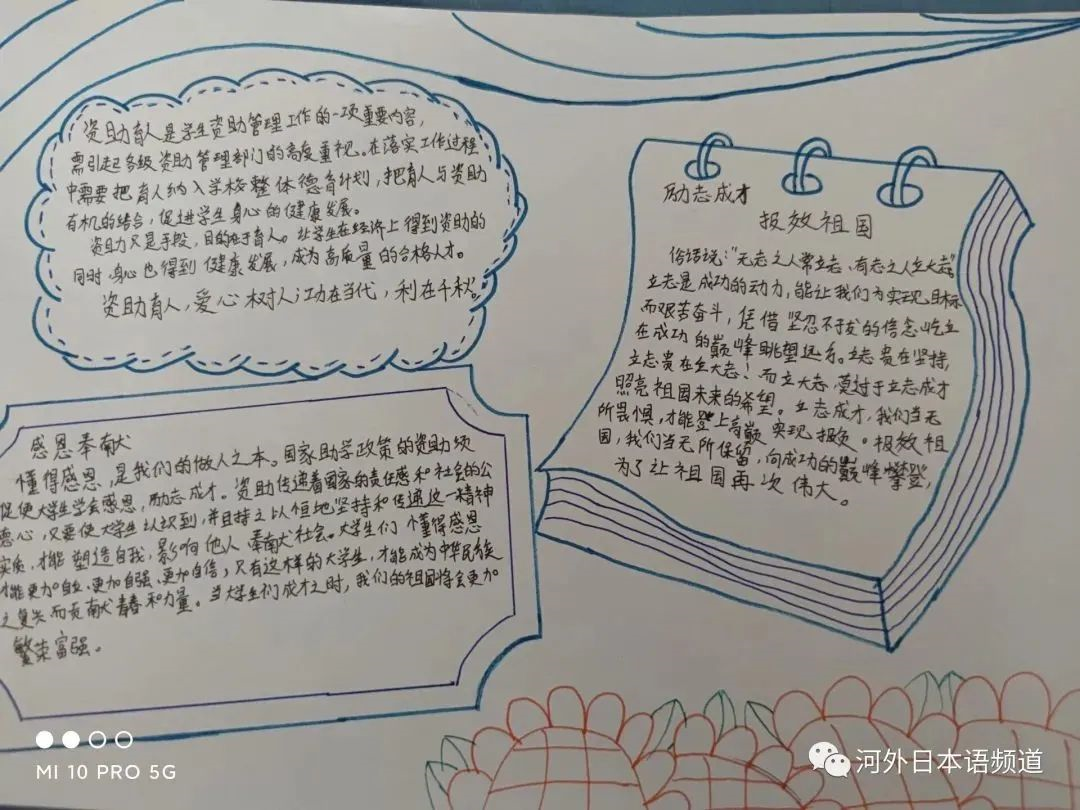 资助育人是学生资助管理工作的一项重要内容,
需引起各级资助管理部门的高度重视。在落实工作过程
中需要把育人纳入学校整体德育计划,把育人与资助
有机的结合,促进学生身心的健康发展。
资助只是手段,目的在于育人。让学生在经济上得到资助的
同时,身心也得到健康发展,成为高质量的合格人才。
资助育人,爱心树人;功在当代,利在千秋。
励志成才
报效祖国
俗话说:“无志之人常立志,有志之人立大志”。
立志是成功的动力,能让我们为实现目标
而艰苦奋斗,凭借坚忍不拔的信念屹立
在成功的巅峰眺望远方。立志贵在坚持,
立志贵在立大志!而立大志,莫过于立志成才
照亮祖国未来的希望。立志成才,我们当无
所畏惧,才能登上高巅实现报负。报效祖
国,我们当无所保留,向成功的巅峰攀登,
为了让祖国再次伟大。
感恩奉献
懂得感恩,是我们的做人之本。国家助学政策的资助须
促使大学生学会感恩,励志成才。资助传递着国家的责任感和社会的公
德心,又要使大学生认识到,并且持之以恒地坚持和传递这一精神
实质,才能塑造自我,影响他人,奉献社会。大学生们懂得感恩
才能更加自立、更加自强、更加自信;只有这样的大学生,才能成为中华民族
之复兴而贡献青春和力量。当大学生们成才之时,我们的祖国将会更加
繁荣富强。
MI 10 PRO 5G
河外日本语频道